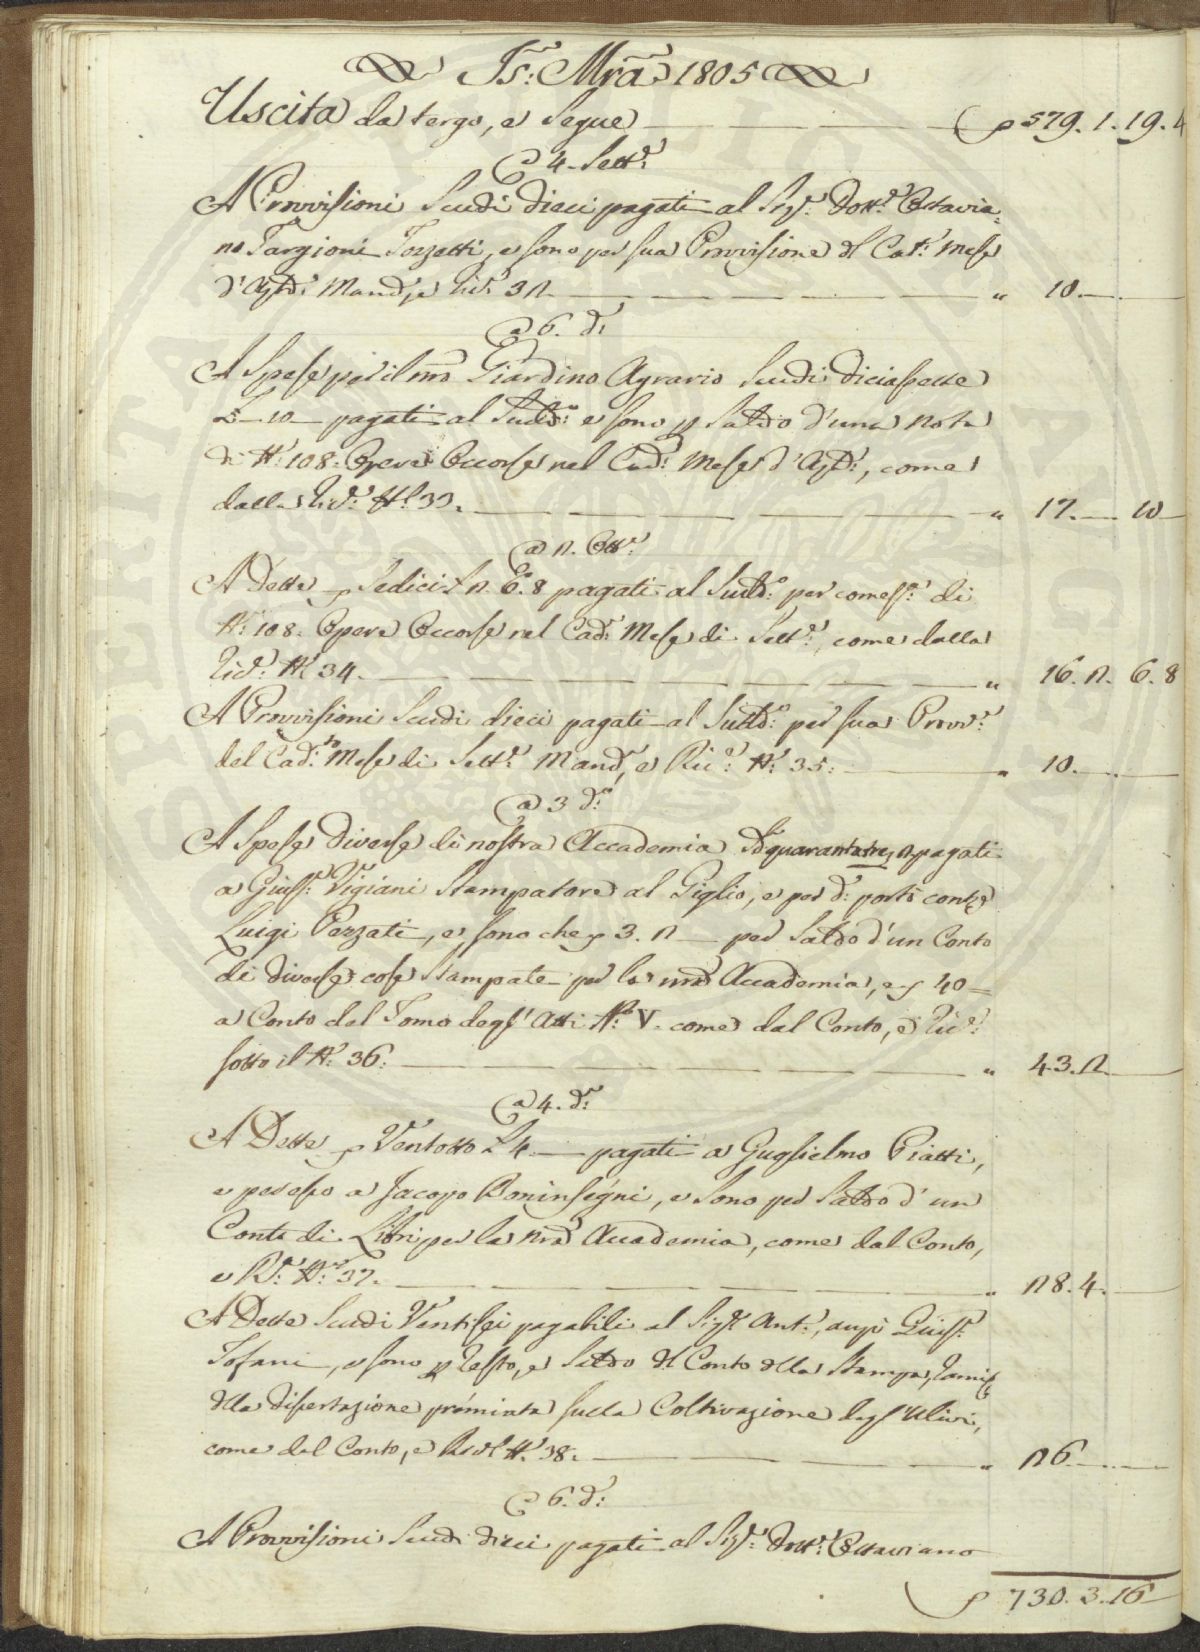 Js: Mrã 1805
Uscita da tergo, e Segue ƒ 579. 1. 19. 4
a 4. Sett.e
A Provvisioni Scudi dieci pagati al Sig.r Dott.r Ottavia-
no Targioni Tozzetti, e sono per sua Provvisione dl Cat.o Mese
d'Ag.to Mand.o, e Ric.a 32 " 10. — —
a 6. d.o
A Spese per il nro Giardino Agrario Scudi diciassette
£ — 10 — pagati al Sud.o e sono p Saldo d'una nota
di N.o 108. Opere Occorse nel Cad.o Mese d'Ag.to, come
dalla Ric.a N.o 33. " 17. — 10 —
a 2. Ott.e
A Dette ƒ Sedici £ 2. 6. 8 pagati al Sud.o per
N.o 108. Opere Occorse nel Cad.o Mese di Sett.e, come dalla
Ric.a N.o 34. " 16. 2. 6. 8
A Provvisioni Scudi dieci pagati al Sudd.o per sua Provv.e
del Cad.to Mese di Sett.e Mand.o, e Ric.a N.o 35. " 10. — —
a 3 d.o
A Spese Diverse di nostra Accademia Sd. quarantatre, 2 pagati
a Gius.e Vigiani Stampatore al Giglio, e per d.o portò cont.i
Luigi Pezzati, e sono che ƒ 3. 2 — per Saldo d'un Conto
di diverse cose Stampate per la nrã Accademia, e ƒ 40 —
a Conto del Tomo degl'Atti N.o V. come dal Conto, e Ric.a
sotto il N.o 36. " 43. 2. —
a 4. d.o
A Dette ƒ Ventotto £ 4. — pagati a Guglielmo Piatti,
e per esso a Jacopo Boninsegni, e sono per Saldo d'un
Conto di Libri per la nrã Accademia, come dal Conto,
e R.a N.o 37. " 28. 4. —
A Dette Scudi Ventisei pagabili al Sig.r Ant.o, anzi Giuse.
Tofani, e sono p resto, e Saldo dl Conto dlla Stampa,
dlla Dissertazione premiata sulla Coltivazione degl'Ulivi,
come dal Conto, e Ric.a N.o 38. " 26. — —
a 6. d.o
A Provvisioni Scudi dieci pagati al Sig.r Dott.r Ottaviano
ƒ 730. 3. 16 —